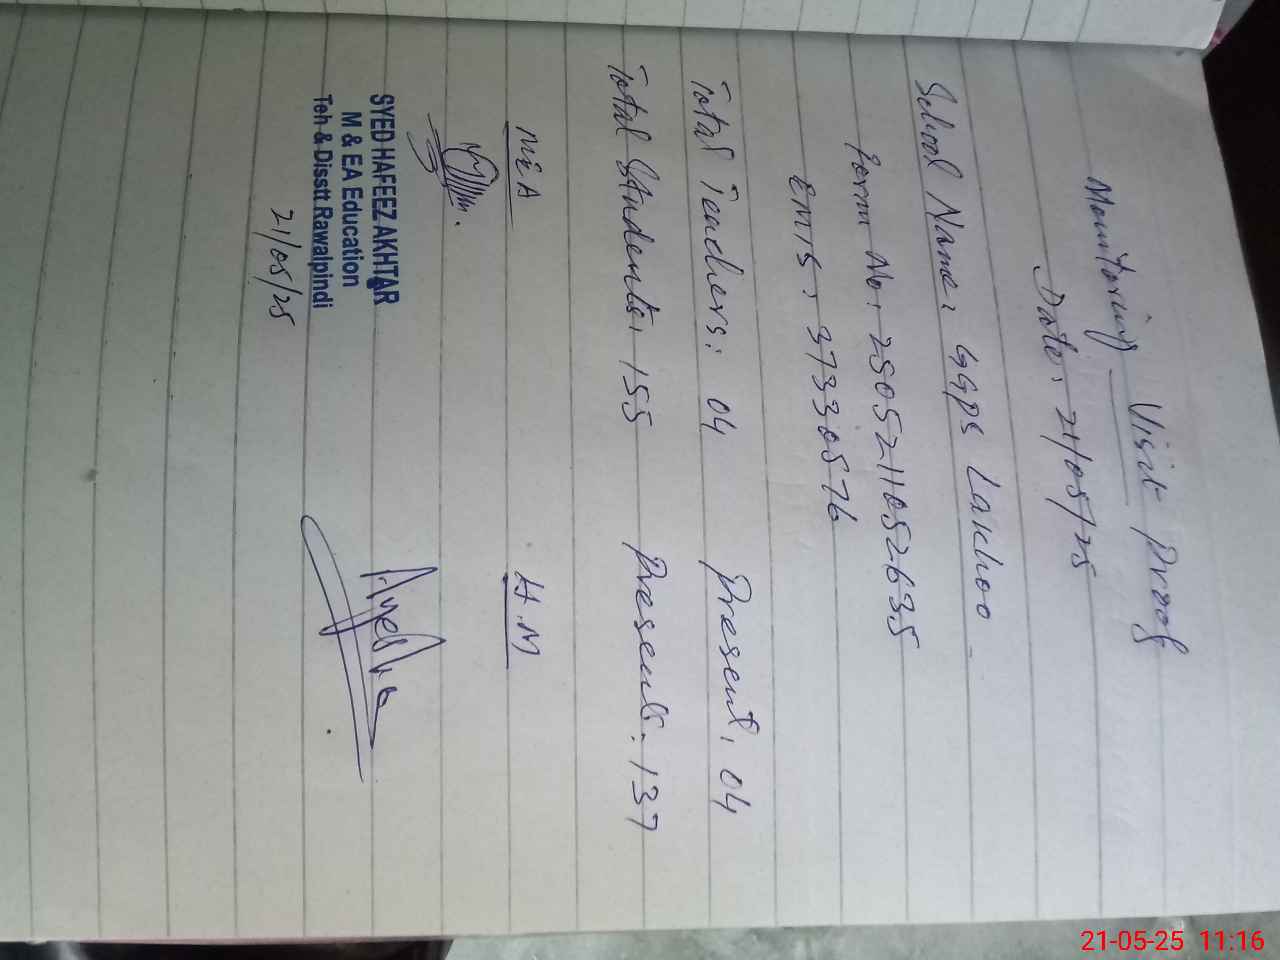 Monitoring Visit Proof
Date: 21/05/25
School Name: GGPS Lakhoo
Form No: 2505211052635
EMIS: 37330576
Total Teachers: 04 Present: 04
Total Students: 155 Present: 137
MEA H.M
SYED HAFEEZ AKHTAR
M & EA Education
Teh & Disstt Rawalpindi
21/05/25
Ayesha
21-05-25 11:16